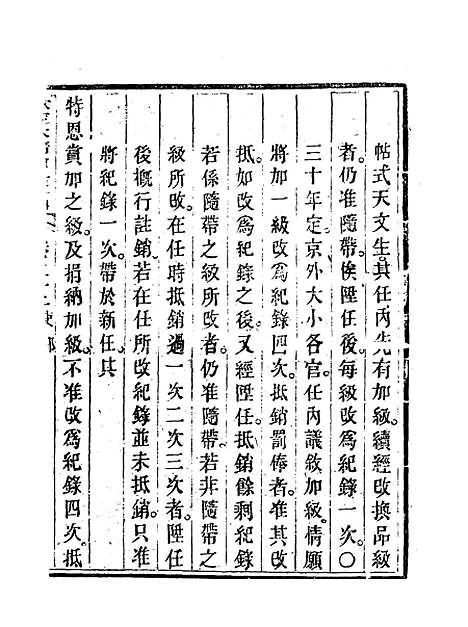 帖式天文生。其任內先有加級。續經改換品級
者。仍准隨帶。俟陞任後。每級改爲紀錄一次。〇
三十年定。京外大小各官。任內議敘加級。情願
將加一級改爲紀錄四次。抵銷罰俸者。准其改
抵。如改爲紀錄之後。又經陞任。抵銷餘剩紀錄
若係隨帶之級所改者。仍准隨帶。若非隨帶之
級所改。在任時抵銷過一次二次三次者。陞任
後槪行註銷。若在任所改紀錄並未抵銷。只准
將紀錄一次。帶於新任。其
特恩賞加之級。及捐納加級。不准改爲紀錄四次。抵